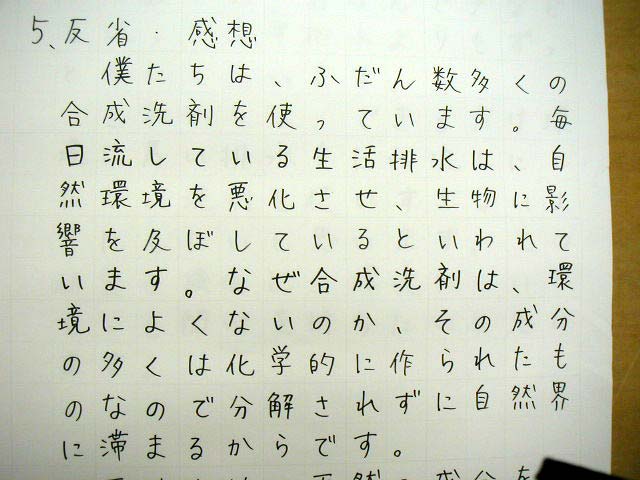 5、反省・感想
僕たちは、ふだん数多くの
合成洗剤を使っています。毎
日流している生活排水は、自
然環境を悪化させ、生物に影
響を及ぼしているといわれて
います。なぜ合成洗剤は、環
境によくないのか、その成分
の多くは化学的に作られたも
のなので分解されずに自然界
に滞まるからです。